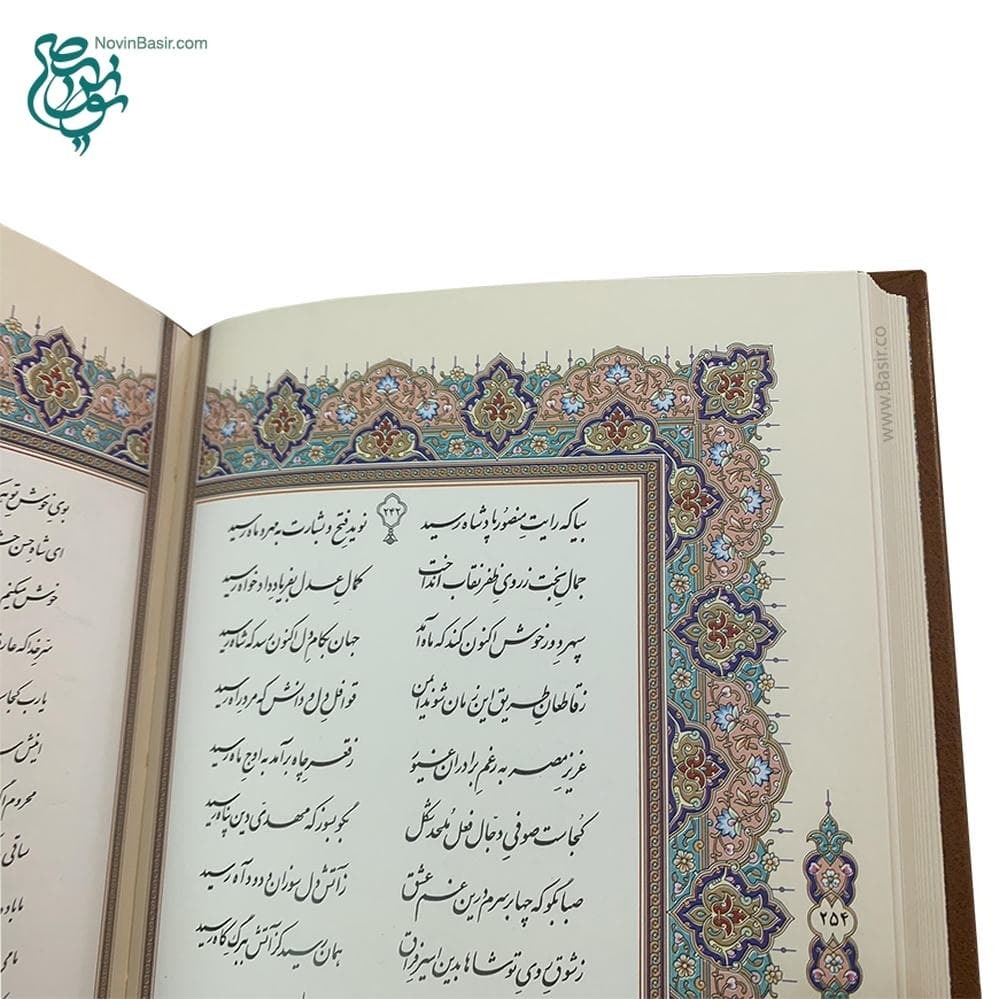 NovinBasir.com
www.Basir.co
۲۴۲
بیا که رایت منصور پادشاه رسید نوید فتح و بشارت به مهر و ماه رسید
جمال بخت ز روی ظفر نقاب انداخت کمال عدل بفریاد دادخواه رسید
سپهر دور خوش اکنون کند که ماه آمد جهان بکام دل اکنون رسد که شاه رسید
ز قاطعان طریق این زمان شوند ایمن قوافل دل و دانش که مرد راه رسید
عزیز مصر به رغم برادران غیور ز قعر چاه برآمد به اوج ماه رسید
کجاست صوفی دجال فعل ملحد شکل بگو بسوز که مهدی دین پناه رسید
صبا بگو که چها بر سرم درین غم عشق ز آتش دل سوزان و دود آه رسید
ز شوق روی تو شاها بدین اسیر فراق همان رسید کز آتش ببرگ کاه رسید
۲۵۴
بوی خوش تو
ای شاه حسن
خوش میکنیم
سر خدا که
یارب
محروم
ساقی